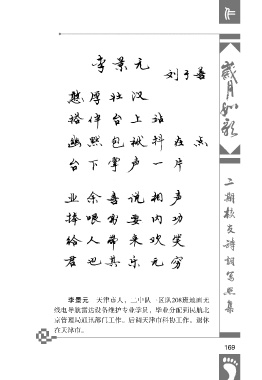 作
李景元
刘于善
憨厚壮汉
搭伴台上站
幽默包袱抖在点
台下掌声一片
业余喜说相声
捧哏需要内功
给人带来欢笑
君也其乐无穷
李景元 天津市人，二中队一区队208班地面无
线电导航雷达设备维护专业学员，毕业分配到民航北
京管理局通讯部门工作。后调天津市科协工作。退休
在天津市。
岁月如歌
二期校友诗词写照集
169